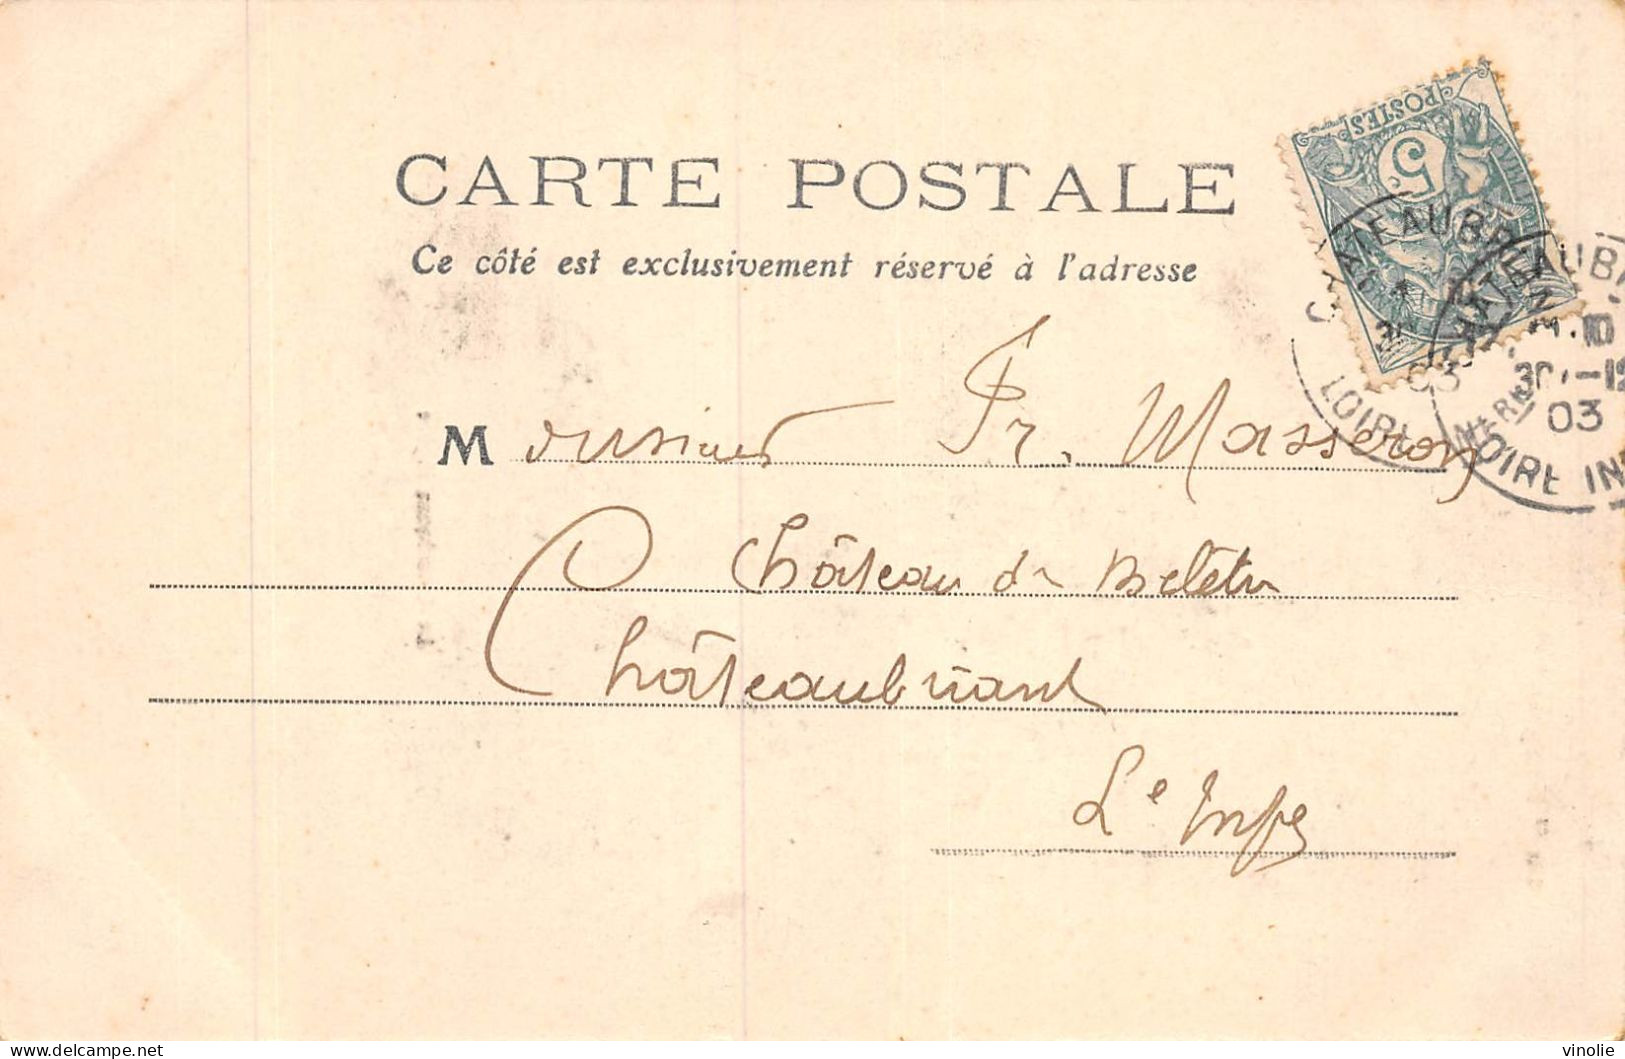 CARTE POSTALE
Ce côté est exclusivement réservé à l'adresse
POSTES
5
CHATEAUBRIANT
03
LOIRE INFERIE
CHATEAUBR
10
30 -12
03
LOIRE IN
Monsieur Fr. Masseron
Château de
Châteaubriant
Lre Infre
delcampe.net
vinolie